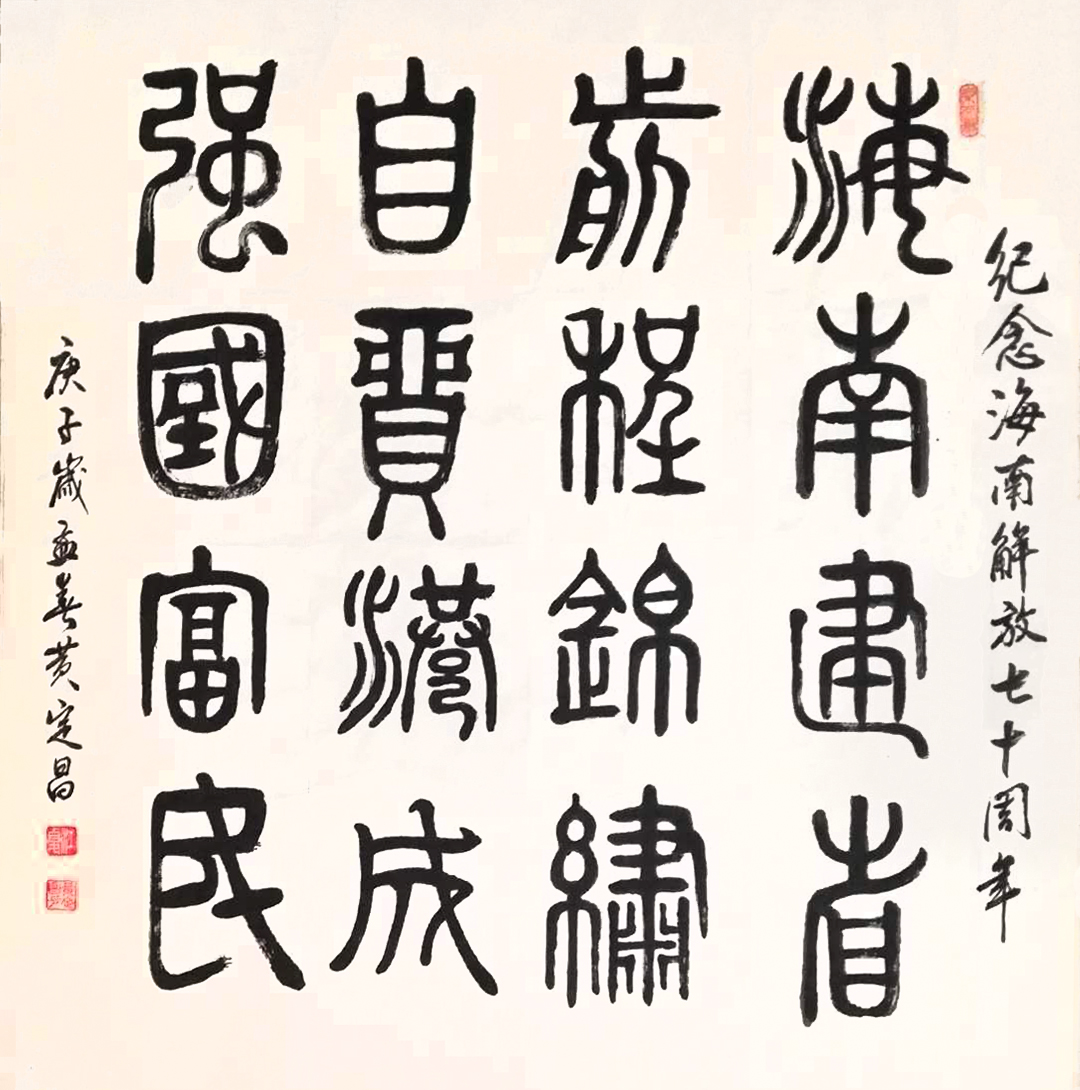 纪念海南解放七十周年
海南建省
前程錦繡
自貿港成
强國富民
庚子歲孟春黄定昌